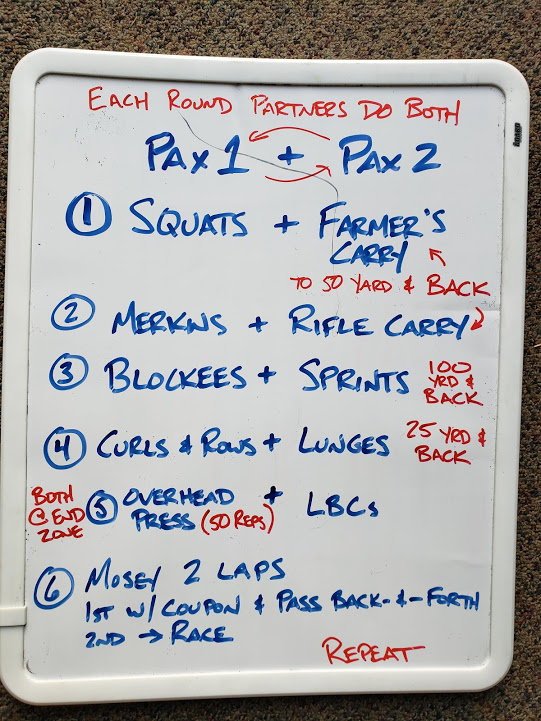 EACH ROUND PARTNERS DO BOTH
PAX 1 + PAX 2
① SQUATS + FARMER'S
CARRY
TO 50 YARD & BACK
② MERKINS + RIFLE CARRY
③ BLOCKEES + SPRINTS 100
YRD &
BACK
④ CURLS & ROWS + LUNGES 25 YRD &
BACK
BOTH
@ END
ZONE
⑤ OVERHEAD + LBCs
PRESS (50 REPS)
⑥ MOSEY 2 LAPS
1ST W/ COUPON & PASS BACK-&-FORTH
2ND → RACE
REPEAT